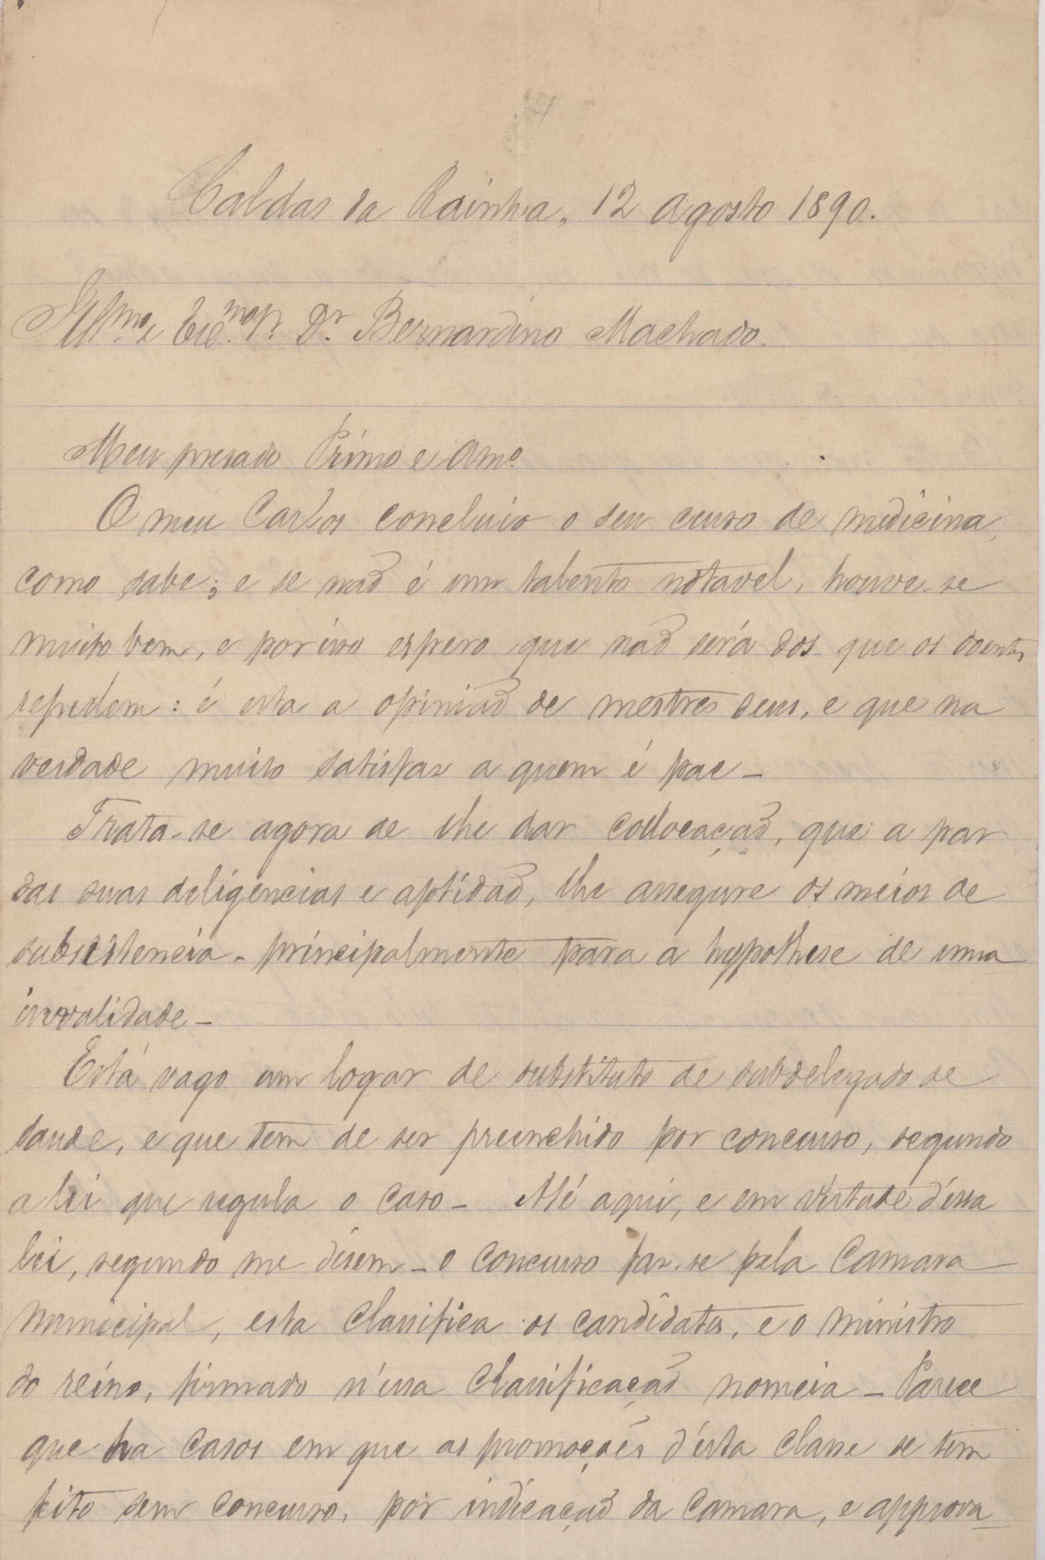 Caldas da Rainha, 12 Agosto 1890.
Illmo. e Exmo. Sr. Dr. Bernardino Machado.
Meu presado Primo e Amo.
O meu Carlos concluio o seu curso de medicina,
como sabe; e se naõ é um talento notavel, houve-se
muito bem, e por isso espero que naõ será dos que os doentes
repellem: é esta a opiniaõ de mestres seus, e que na
verdade muito satisfaz a quem é pae –
Trata-se agora de lhe dar collocaçaõ, que a par
das suas deligencias e aptidaõ, lhe assegure os meios de
subsistencia – principalmente para a hypothese de uma
invalidade –
Está vago um logar de substituto de subdelegado de
saude, e que tem de ser preenchido por concurso, segundo
a lei que regula o caso – Até aqui, e em virtude d'essa
lei, segundo me disem – o concurso faz-se pela Camara
Municipal, esta classifica os candidatos, e o ministro
do reino, firmado n'essa classificaçaõ nomeia – Parece
que ha casos em que as promoções d'esta classe se tem
feito sem concurso, por indicaçaõ da camara, e approva-